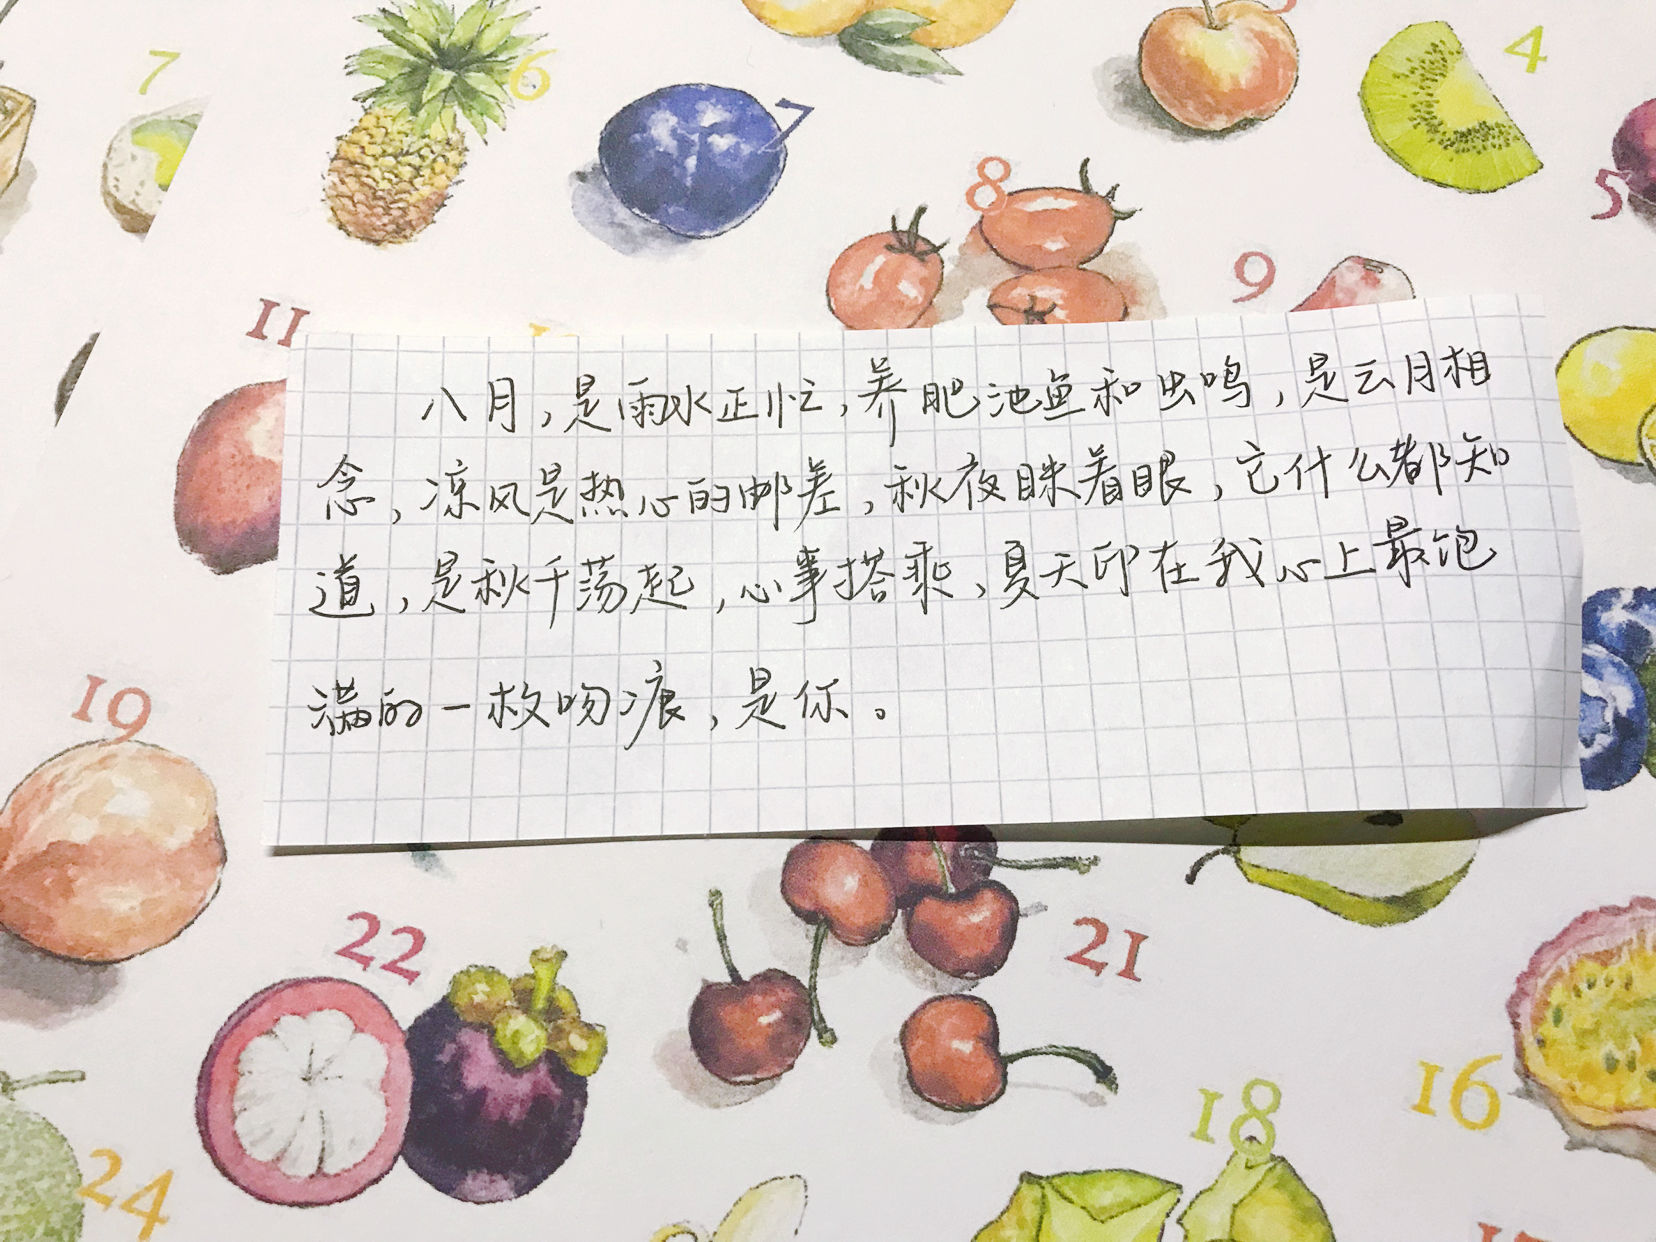 7
6
7
8
4
5
9
11
八月,是雨水正忙,养肥池鱼和虫鸣,是云月相
念,凉风是热心的邮差,秋夜眯着眼,它什么都知
道,是秋千荡起,心事搭乘,夏天印在我心上最饱
满的一枚吻痕,是你。
19
22
21
16
18
24